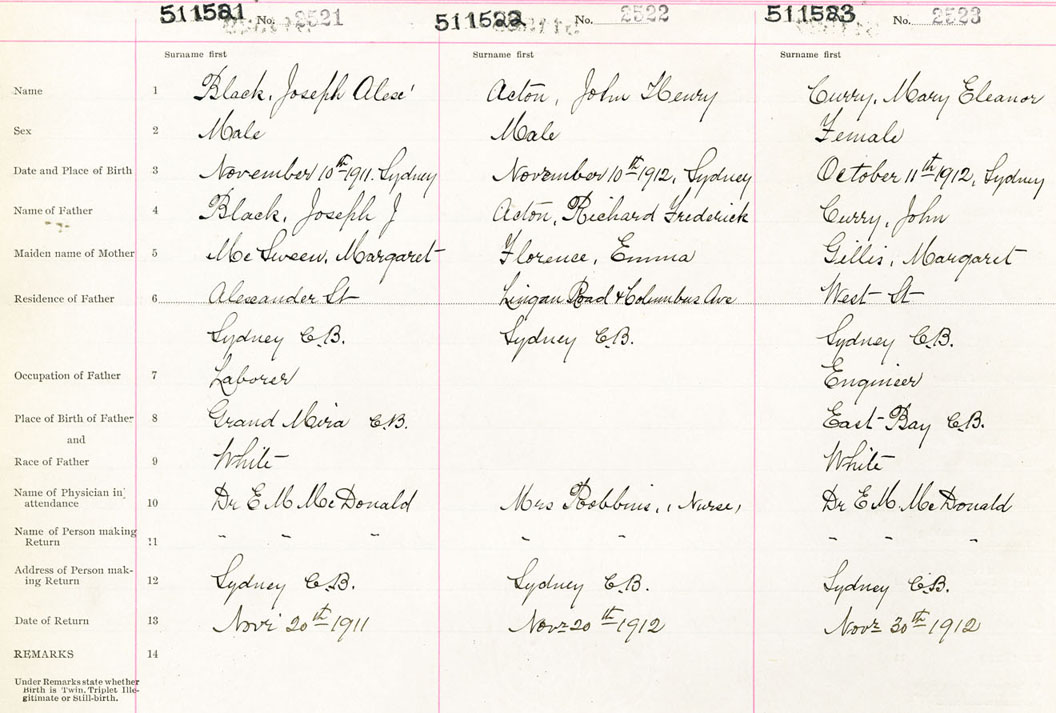 511581 No. 2521 511522 No. 2522 511583 No. 2523
Surname first Surname first Surname first
Name 1 Black, Joseph Alex' Acton, John Henry Curry, Mary Eleanor
Sex 2 Male Male Female
Date and Place of Birth 3 November 10th 1911. Sydney November 10th 1912, Sydney October 11th 1912, Sydney
Name of Father 4 Black, Joseph J Acton, Richard Frederick Curry, John
Maiden name of Mother 5 Mc Sween, Margaret Florence, Emma Gillis, Margaret
Residence of Father 6 Alexander St Lingan Road & Columbus Ave West St
Sydney C.B. Sydney C.B. Sydney C.B.
Occupation of Father 7 Laborer Engineer
Place of Birth of Father 8 Grand Mira C.B. East Bay C.B.
and
Race of Father 9 White White
Name of Physician in
attendance 10 Dr E M McDonald Mrs Robbins, (Nurse) Dr E M. McDonald
Name of Person making
Return 11 " " " " " " " "
Address of Person mak-
ing Return 12 Sydney C.B. Sydney C.B. Sydney C.B.
Date of Return 13 Novr 20th 1911 Novr 20th 1912 Novr 30th 1912
REMARKS 14
Under Remarks state whether
Birth is Twin, Triplet Ille-
gitimate or Still-birth.